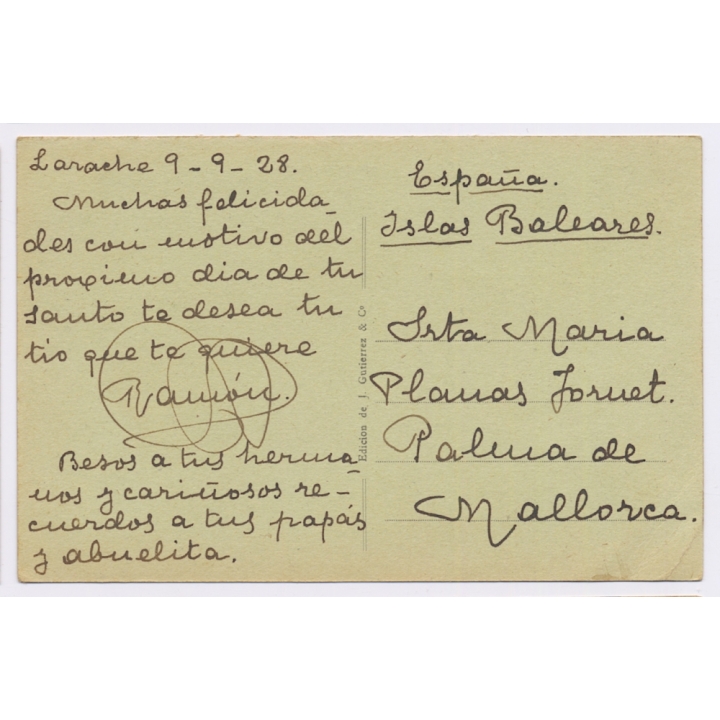 Larache 9-9-28.
Muchas felicida-
des con motivo del
proximo dia de tu
santo te desea tu
tio que te quiere
Ramón.
Besos a tus herma-
nos y cariñosos re-
cuerdos a tus papás
y abuelita.
Edicion de J. Gutierrez & Cº
España.
Islas Baleares.
Srta Maria
Planas Jornet.
Palma de
Mallorca.